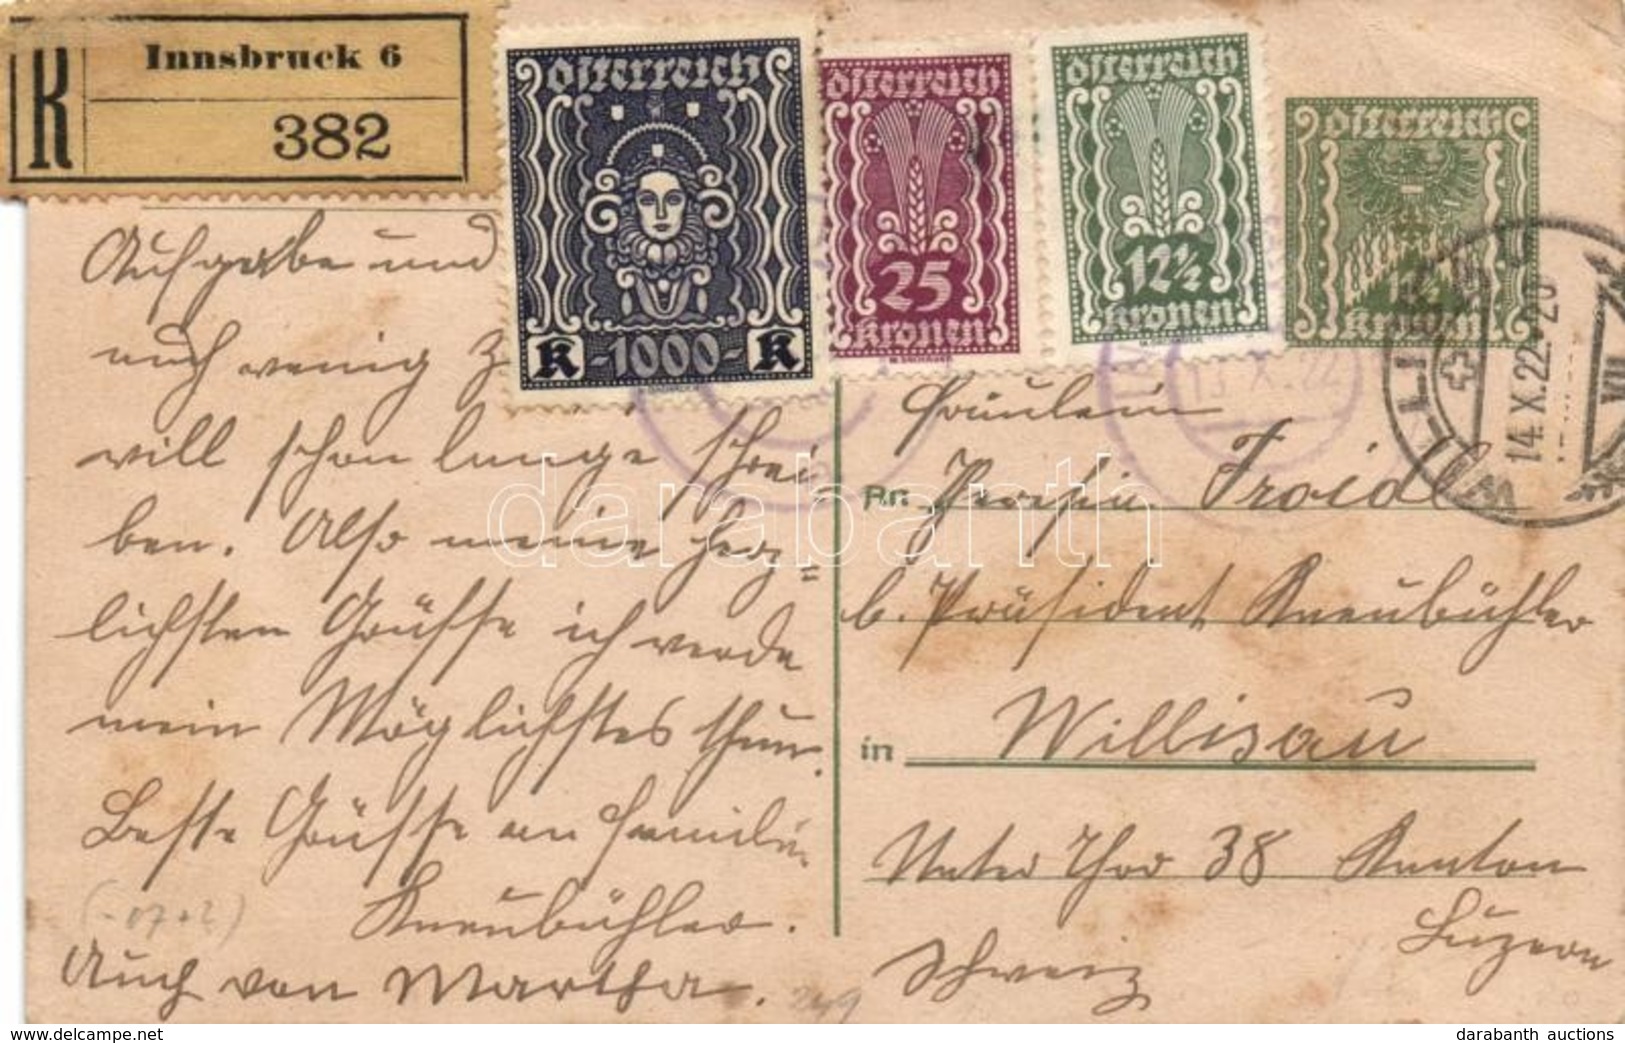 R
Innsbruck 6
382
Österreich
K -1000- K
Österreich
25
kronen
Österreich
12½
kronen
Österreich
kronen
14.X.22
VII
13.X.22
Aufgabe und
auch wenig
will schon lange schrei
ben. Also meine herz=
lichsten Grüsse ich werde
mein Möglichstes thun.
Beste Grüsse an Familie
Kneubühler.
Auch von Martha.
Fräulein
An Theresia Froidl
b. Präsident Kneubühler
in Willisau
Unter Thor 38 Kanton
Luzern
Schweiz
darabanth
darabanth auctions